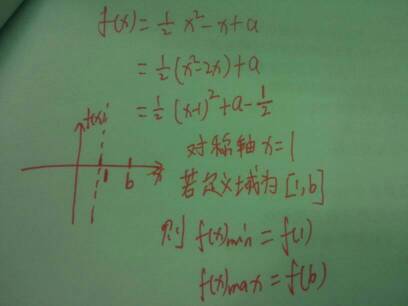 f(x)=½x²-x+a
=½(x²-2x)+a
=½(x-1)²+a-½
f(x)
1 b x
对称轴x=1
若定义域为[1,b]
则f(x)min=f(1)
f(x)max=f(b)